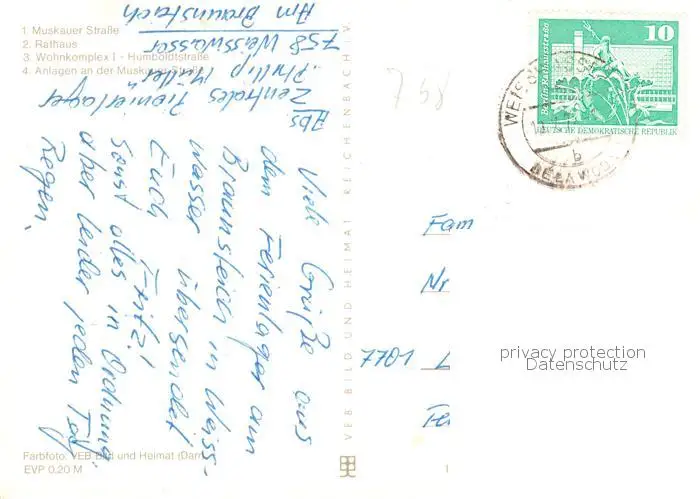 1 Muskauer Straße
2. Rathaus
3. Wohnkomplex I - Humboldtstraße
4. Anlagen an der Muskauer Straße
Abs.
Zentrales Pionierlager
"Philipp Müller"
758 Weisswasser
Am Braunsteich
Viele Grüße aus
dem Ferienlager am
Braunsteich in Weiss-
wasser übersendet
Euch Fritz!
Sonst alles in Ordnung
aber leider jeden Tag
Regen.
Farbfoto: VEB Bild und Heimat
EVP 0,20 M
VEB BILD UND HEIMAT REICHENBACH I. V.
758
10
Berlin, Rathausstraße
DEUTSCHE DEMOKRATISCHE REPUBLIK
b
Fam
Nr
7701 L
privacy protection
Datenschutz